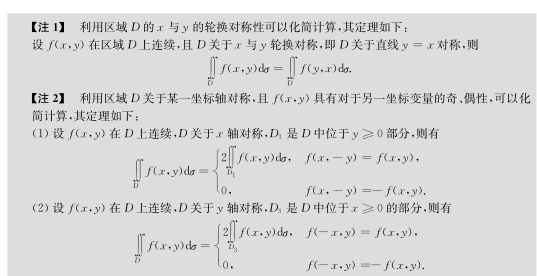 【注 1】 利用区域 D 的 x 与 y 的轮换对称性可以化简计算,其定理如下:
设 f(x,y) 在区域 D 上连续,且 D 关于 x 与 y 轮换对称,即 D 关于直线 y = x 对称,则
∬_D f(x,y)dσ = ∬_D f(y,x)dσ.
【注 2】 利用区域 D 关于某一坐标轴对称,且 f(x,y) 具有对于另一坐标变量的奇、偶性,可以化
简计算,其定理如下:
(1) 设 f(x,y) 在 D 上连续,D 关于 x 轴对称,D₁ 是 D 中位于 y ⩾ 0 部分,则有
∬_D f(x,y)dσ = { 2∬_{D₁} f(x,y)dσ, f(x,-y) = f(x,y),
0, f(x,-y) =-f(x,y).
(2) 设 f(x,y) 在 D 上连续,D 关于 y 轴对称,D₂ 是 D 中位于 x ⩾ 0 的部分,则有
∬_D f(x,y)dσ = { 2∬_{D₂} f(x,y)dσ, f(-x,y) = f(x,y),
0, f(-x,y) =-f(x,y).